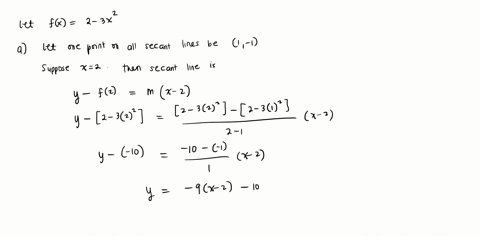 Let f(x) = 2-3x²
a) Let one point on all secant lines be (1,-1)
Suppose x=2. Then secant line is
y - f(2) = m (x-2)
y - [2-3(2)²] = [2-3(2)²] - [2-3(1)²] / 2-1 (x-2)
y - (-10) = -10 - (-1) / 1 (x-2)
y = -9(x-2) - 10